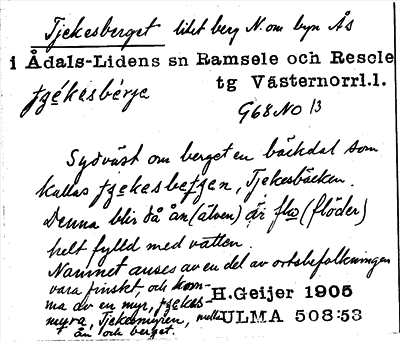 Tjekesberget litet berg N. om byn Ås
i Ådals-Lidens sn Ramsele och Resele
tg Västernorrl.l.
G68NO 13
Sydväst om berget en bäckdal som
kallas , Tjekesbäcken.
Denna blir då ån (älven) är flo (flöder)
helt fylld med vatten.
Namnet anses av en del av ortsbefolkningen
vara finskt, och kom-
ma av en myr,
Tjekesmyren, mellan
ån och berget.
H.Geijer 1905
ULMA 508:53